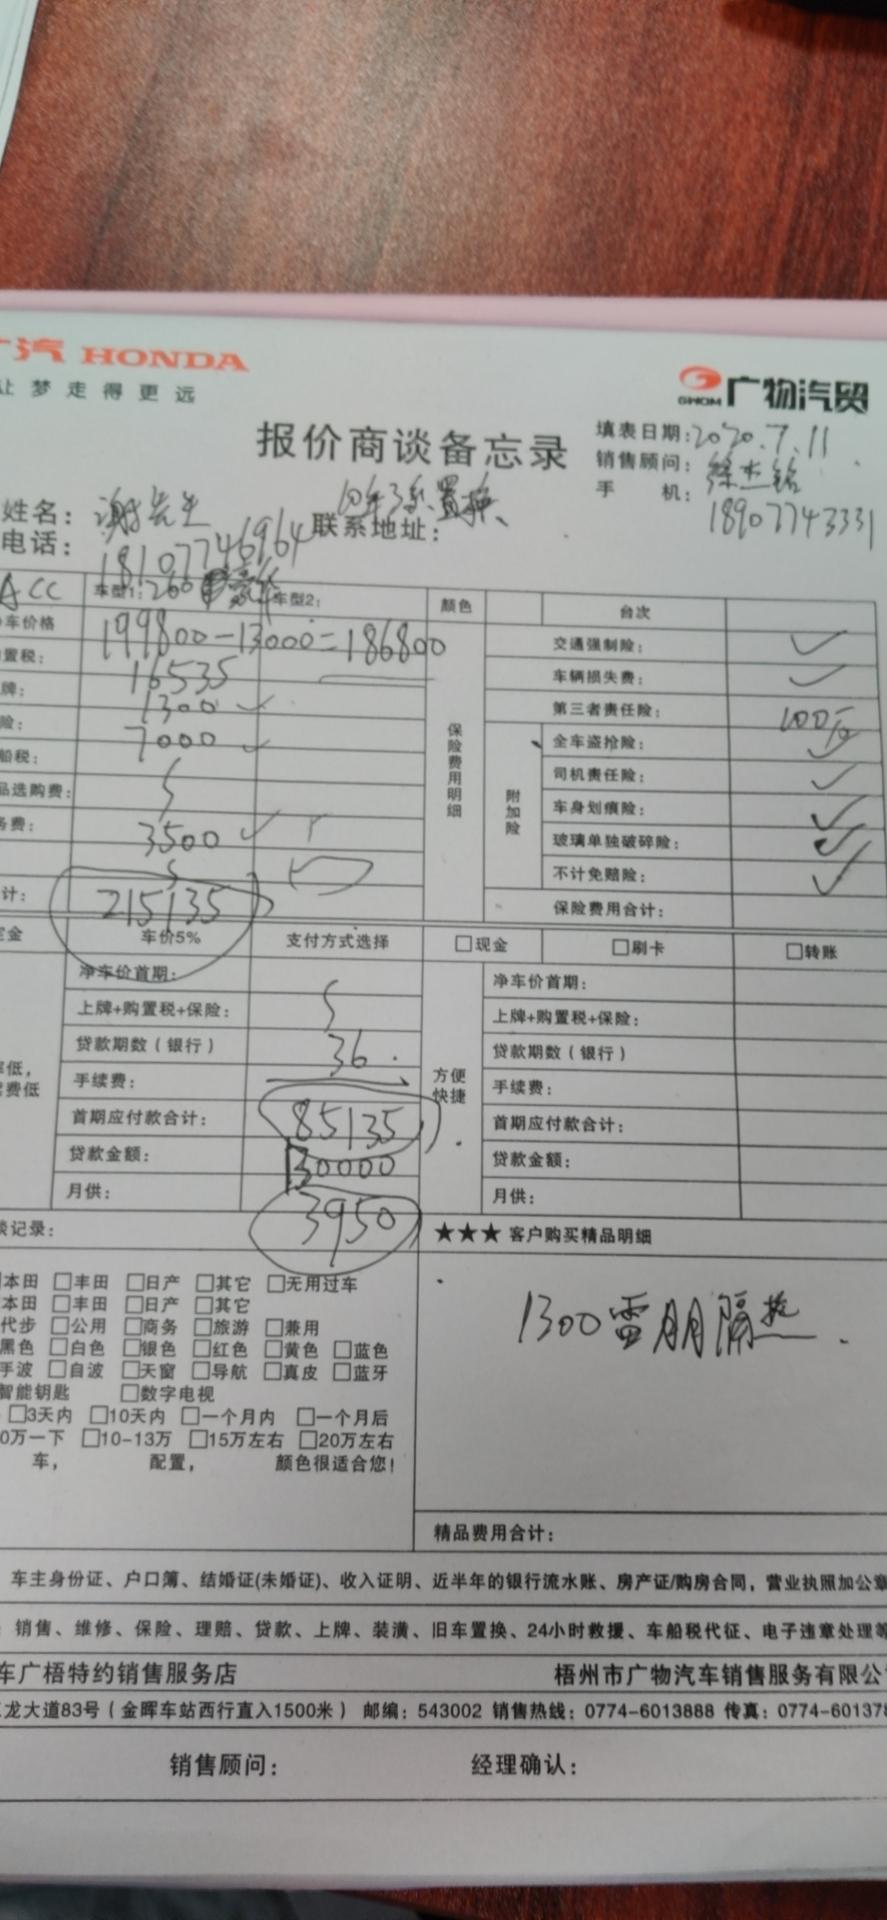 广汽 HONDA
让梦走得更远
GWCM 广物汽贸
报价商谈备忘录
填表日期:2020.7.11
销售顾问:
手 机:
18907743331
姓名:谢先生
联系地址:
置换
电话:18107746964
ACC 车型1:260豪华 车型2: 颜色 台次
车价格 199800-13000=186800
置税: 16535
牌: 1300 ✓
险: 7000 ✓
船税:
品选购费:
务费: 3500 ✓
计: 215135
保险费用明细
交通强制险: ✓
车辆损失费: ✓
第三者责任险: 100万
附加险
全车盗抢险: ✓
司机责任险: ✓
车身划痕险: ✓
玻璃单独破碎险: ✓
不计免赔险: ✓
保险费用合计:
定金 车价5% 支付方式选择 □现金 □刷卡 □转账
率低,
费低
净车价首期:
上牌+购置税+保险:
贷款期数(银行) 36
手续费:
首期应付款合计: 85135
贷款金额: 130000
月供: 3950
方便
快捷
净车价首期:
上牌+购置税+保险:
贷款期数(银行)
手续费:
首期应付款合计:
贷款金额:
月供:
谈记录:
★★★ 客户购买精品明细
本田 □丰田 □日产 □其它 □无用过车
本田 □丰田 □日产 □其它
代步 □公用 □商务 □旅游 □兼用
黑色 □白色 □银色 □红色 □黄色 □蓝色
手波 □自波 □天窗 □导航 □真皮 □蓝牙
智能钥匙 □数字电视
□3天内 □10天内 □一个月内 □一个月后
0万一下 □10-13万 □15万左右 □20万左右
车, 配置, 颜色很适合您!
1300雷朋隔热
精品费用合计:
车主身份证、户口簿、结婚证(未婚证)、收入证明、近半年的银行流水账、房产证/购房合同,营业执照加公章
销售、维修、保险、理赔、贷款、上牌、装潢、旧车置换、24小时救援、车船税代征、电子违章处理等
车广梧特约销售服务店
梧州市广物汽车销售服务有限公
龙大道83号(金晖车站西行直入1500米) 邮编:543002 销售热线:0774-6013888 传真:0774-60137
销售顾问: 经理确认: